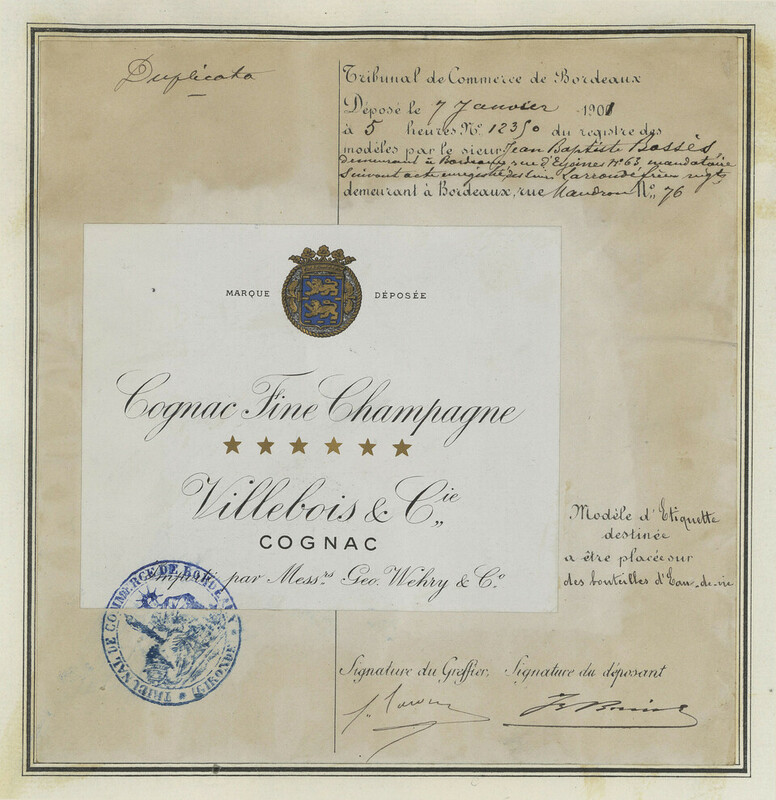 Duplicata
Tribunal de Commerce de Bordeaux
Déposé le 7 Janvier 1901
à 5 heures N°. 12350 du registre des
modèles par le sieur Jean Baptiste Bossès
demeurant à Bordeaux rue d'Eysines N° 63 mandataire
suivant acte enregistré des sieurs Larroudé frères
demeurant à Bordeaux, rue Mandron N°. 76
MARQUE DÉPOSÉE
Cognac Fine Champagne
Villebois & Cie
COGNAC
par Messrs Geo. Wehry & Co
Modèle d'Etiquette
destinée
a être placée sur
des bouteilles d'Eau-de-vie
TRIBUNAL DE COMMERCE DE BORDEAUX (GIRONDE)
Signature du Greffier, Signature du déposant